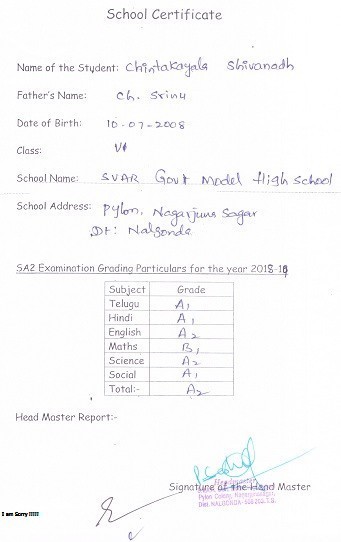 School Certificate
Name of the Student: Chintakayala Shivanadh
Father's Name: Ch. Srinu
Date of Birth: 10-07-2008
Class: VI
School Name: SVAR Govt Model High School
School Address: Pylon, Nagarjuna Sagar
Dt: Nalgonda
SA2 Examination Grading Particulars for the year 2018-19
Subject Grade
Telugu A1
Hindi A1
English A2
Maths B1
Science A2
Social A1
Total:- A2
Head Master Report:-
Signature of the Head Master
Headmaster
Pylon Colony, Nagarjunasagar,
Dist. NALGONDA-508202. T.S.
I am Sorry !!!!!